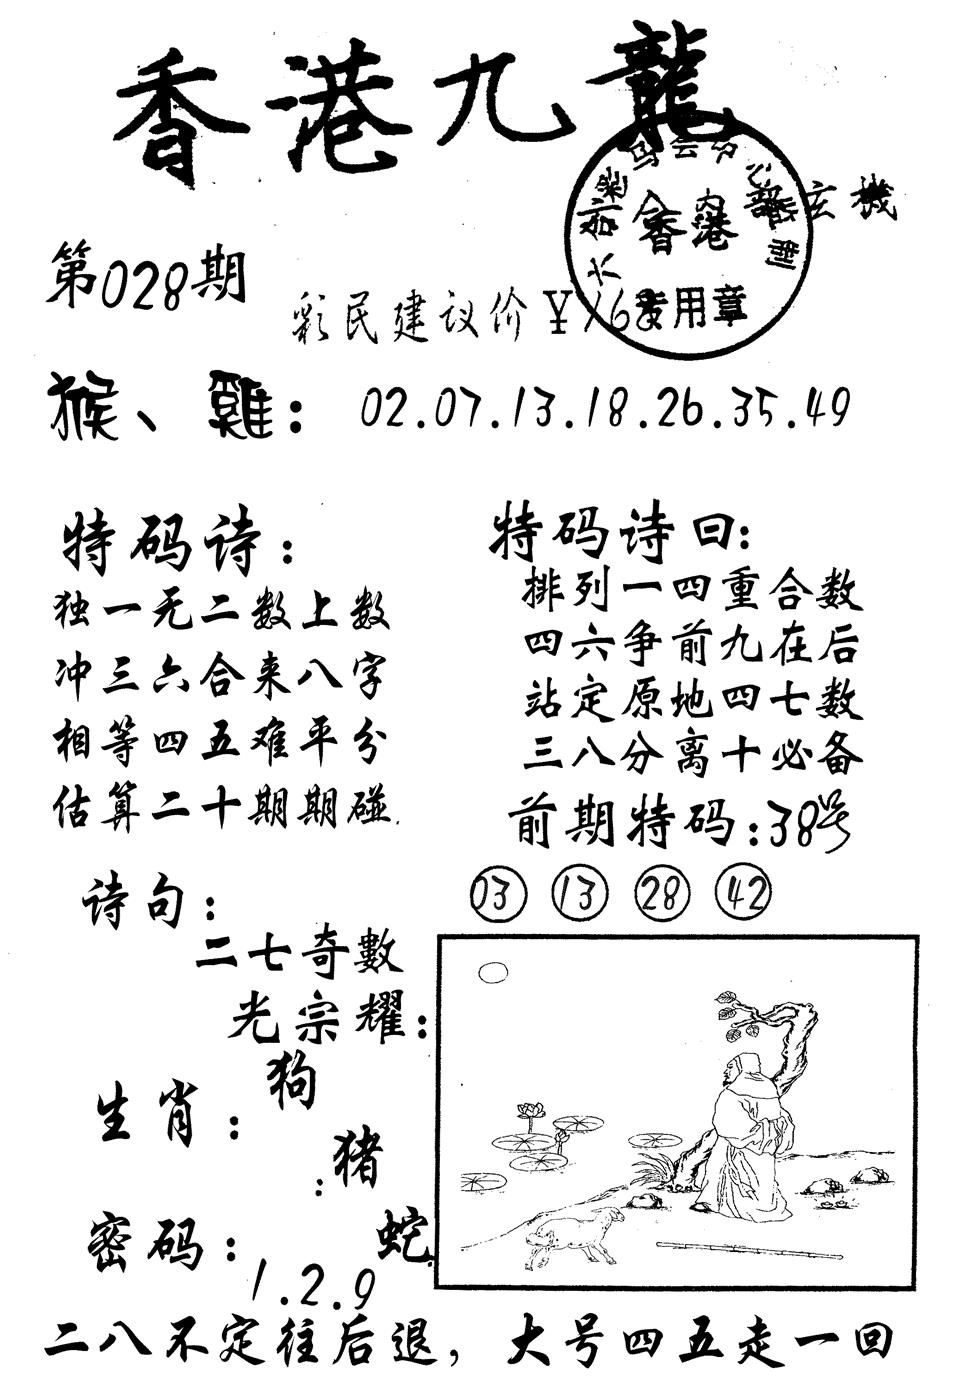 香港九龍
玄機
香港
专用章
第028期
彩民建议价￥168
猴、雞：02.07.13.18.26.35.49
特码诗：
独一无二数上数
冲三六合来八字
相等四五难平分
估算二十期期碰.
特码诗曰：
排列一四重合数
四六争前九在后
站定原地四七数
三八分离十必备
前期特码：38号
03 13 28 42
诗句：
二七奇數
光宗耀：
生肖：
狗
：猪
蛇
密码：
1.2.9
二八不定往后退，大号四五走一回